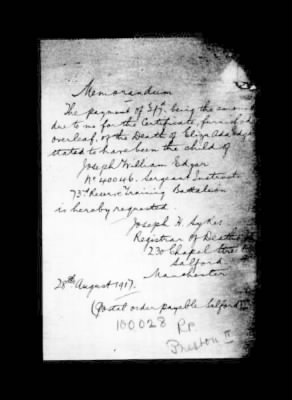 Memorandum
The payment of 3/7d. being the amount
due to me for the Certificate furnished
overleaf, of the Death of Eliza Ada Edgar
stated to have been the child of
Joseph William Edgar
No 40046. Sergeant Instruct
73rd Reserve Training Battalion
is hereby requested.
Joseph H. Sykes
Registrar of Deaths
230 Chapel Street
Salford
Manchester
28th August 1917.
(Postal order payable Salford
100028 R.P.
Preston II